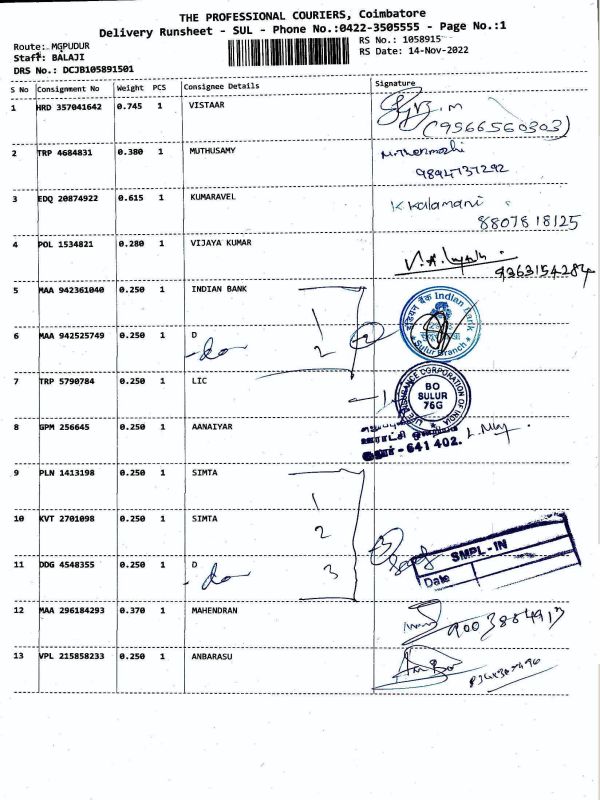 THE PROFESSIONAL COURIERS, Coimbatore
Delivery Runsheet - SUL - Phone No.:0422-3505555 - Page No.:1
Route: MGPUDUR
RS No.: 1058915
Staff: BALAJI
RS Date: 14-Nov-2022
DRS No.: DCJB105891501
S No Consignment No Weight PCS Consignee Details Signature
1 HRD 357041642 0.745 1 VISTAAR
(9566560303)
2 TRP 4684831 0.380 1 MUTHUSAMY
9894737292
3 EDQ 20874922 0.615 1 KUMARAVEL K. Kalamani
8807818125
4 POL 1534821 0.280 1 VIJAYA KUMAR
9363154284
5 MAA 942361040 0.250 1 INDIAN BANK 1
इंडियन बैंक Indian Bank
Sulur Branch
6 MAA 942525749 0.250 1 D 2 2
-do
7 TRP 5790784 0.250 1 LIC -1
LIFE INSURANCE CORPORATION OF INDIA
BO
SULUR
76G
8 GPM 256645 0.250 1 AANAIYAR
- 641 402.
9 PLN 1413198 0.250 1 SIMTA 1
10 KVT 2701098 0.250 1 SIMTA 2 3
SMPL - IN
Date
11 DDG 4548355 0.250 1 D 3
-do
12 MAA 296184293 0.370 1 MAHENDRAN
9003884913
13 VPL 215858233 0.250 1 ANBARASU